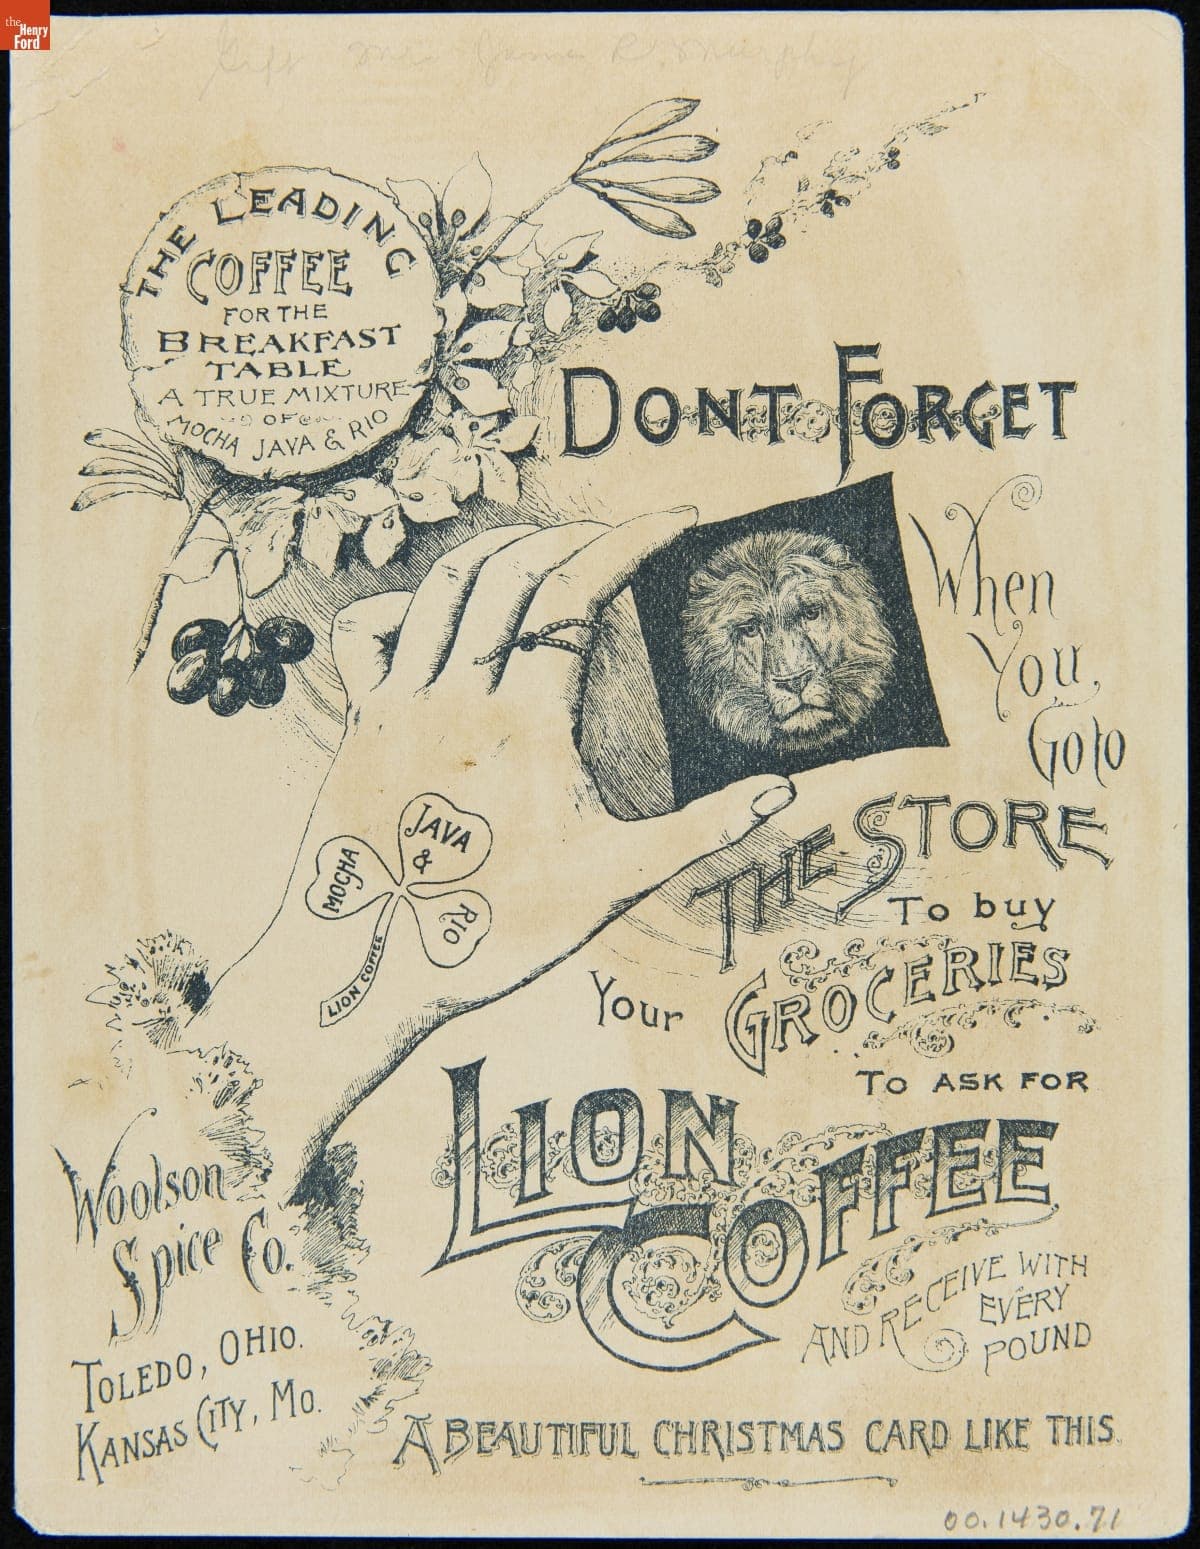 the
Henry
Ford
Gift Mrs. James R. Murphy
THE LEADING
COFFEE
FOR THE
BREAKFAST
TABLE
A TRUE MIXTURE
OF
MOCHA JAVA & RIO
DONT FORGET
When
You
Go to
THE STORE
To buy
Your GROCERIES
TO ASK FOR
LION
COFFEE
AND RECEIVE WITH
EVERY
POUND
A BEAUTIFUL CHRISTMAS CARD LIKE THIS.
MOCHA
JAVA
&
RIO
LION COFFEE
Woolson
Spice Co.
TOLEDO, OHIO.
KANSAS CITY, MO.
00.1430.71